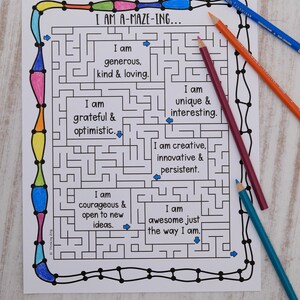 I AM A-MAZE-ING...
I am
generous,
kind & loving.
I am
unique &
interesting.
I am
grateful &
optimistic.
I am creative,
innovative &
persistent.
I am
courageous &
open to new
ideas.
I am
awesome just
the way I am.